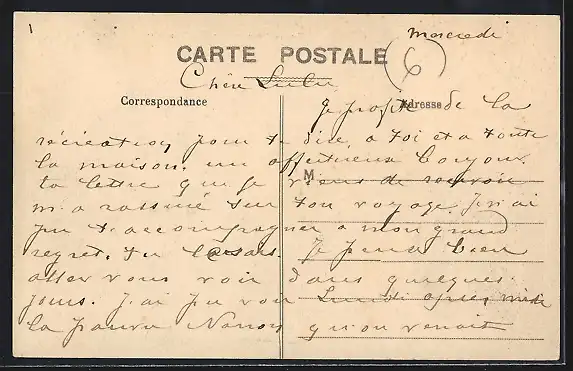 1
Mercredi
6
CARTE POSTALE
Chère Lulu
Correspondance
Adresse
Je profite de la
récréation pour te dire, a toi et a toute
la maison, un affectueux bonjour.
M
ta lettre que je viens de recevoir
m'a rassuré sur ton voyage. Je n'ai
pu t'accompagner a mon grand
regret, tu le sais. Je pense bien
aller vous voir dans quelques
jours. J'ai pu voir Lundi après midi
la pauvre Nanon qu'on venait